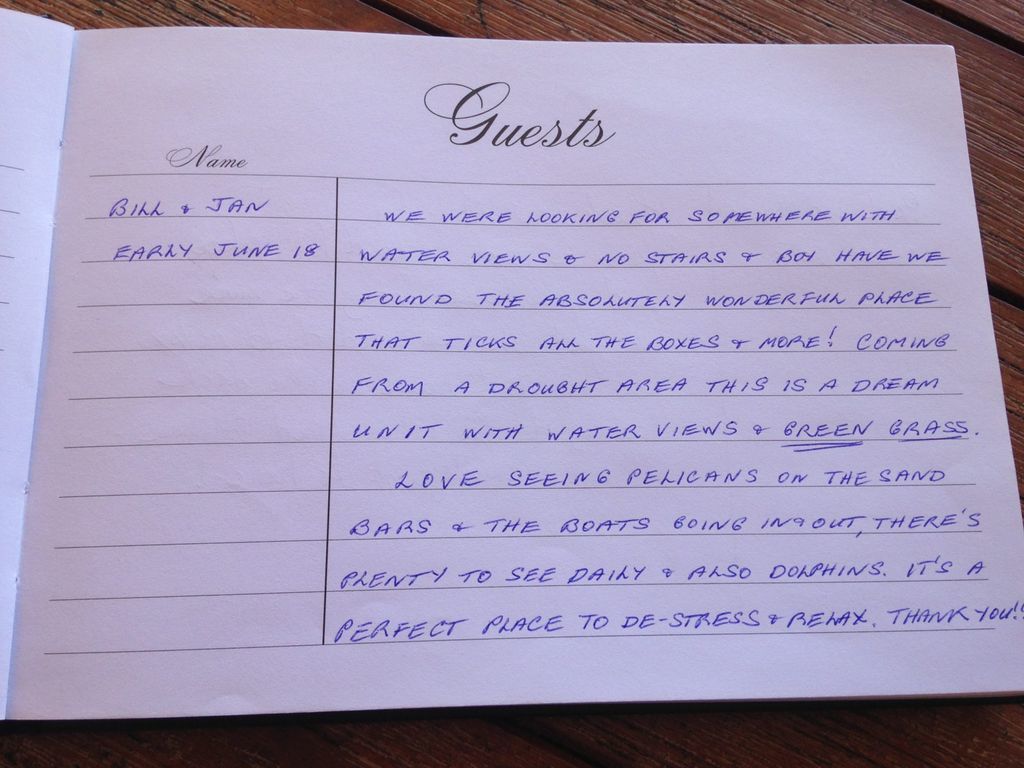 Guests
Name
BILL & JAN
EARLY JUNE 18
WE WERE LOOKING FOR SOMEWHERE WITH
WATER VIEWS & NO STAIRS & BOY HAVE WE
FOUND THE ABSOLUTELY WONDERFUL PLACE
THAT TICKS ALL THE BOXES & MORE! COMING
FROM A DROUGHT AREA THIS IS A DREAM
UNIT WITH WATER VIEWS & GREEN GRASS.
LOVE SEEING PELICANS ON THE SAND
BARS & THE BOATS GOING IN & OUT, THERE'S
PLENTY TO SEE DAILY & ALSO DOLPHINS. IT'S A
PERFECT PLACE TO DE-STRESS & RELAX. THANK YOU!!